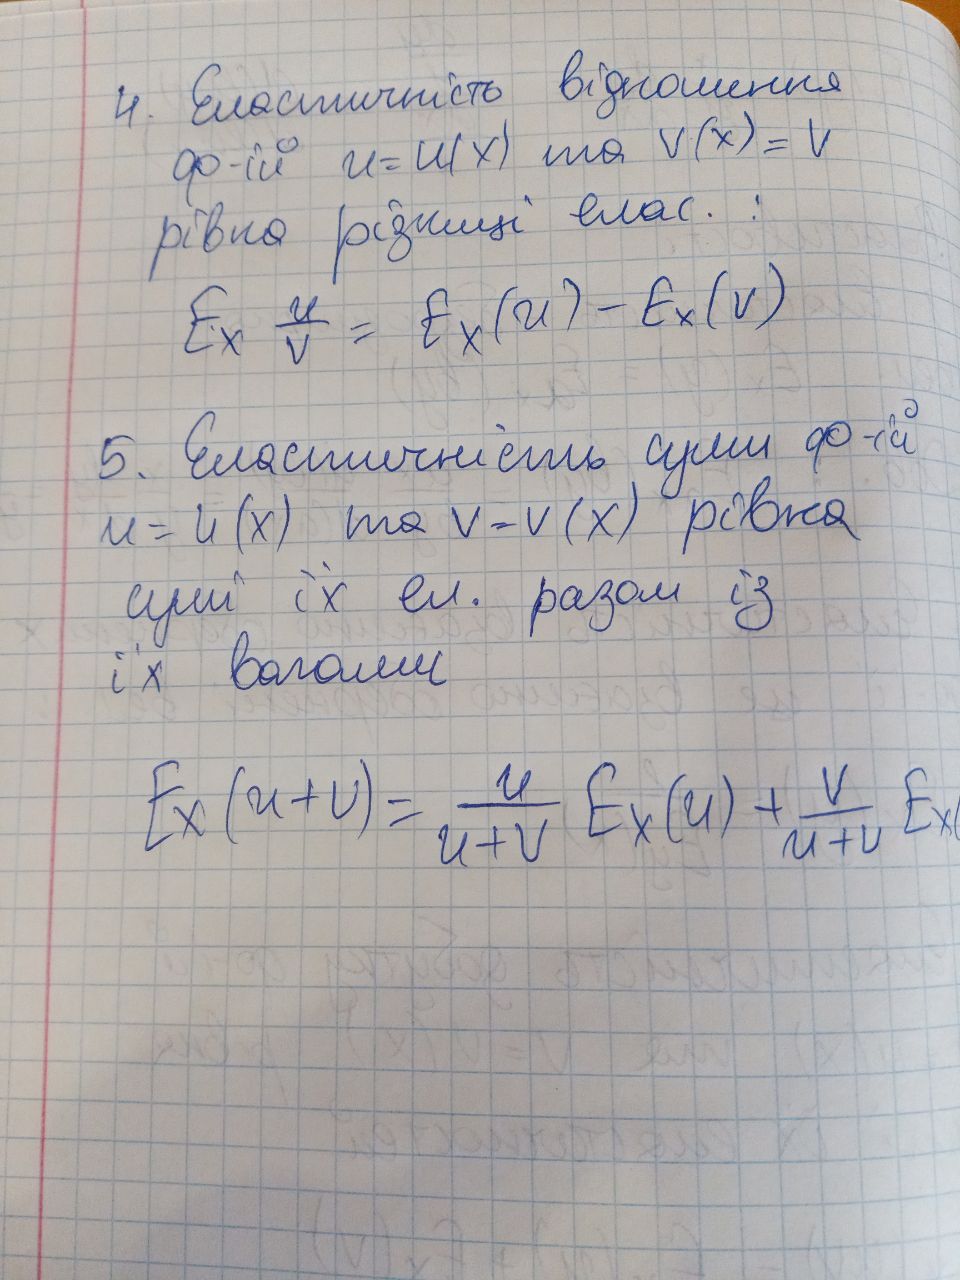 4. Еластичність відношення
ф-ій u = u(x) та v(x) = v
рівна різниці елас. :
Ex u/v = Ex(u) - Ex(v)
5. Еластичність суми ф-ій
u = u(x) та v = v(x) рівна
сумі їх ел. разом із
їх вагами
Ex(u+v) = u/(u+v) Ex(u) + v/(u+v) Ex(